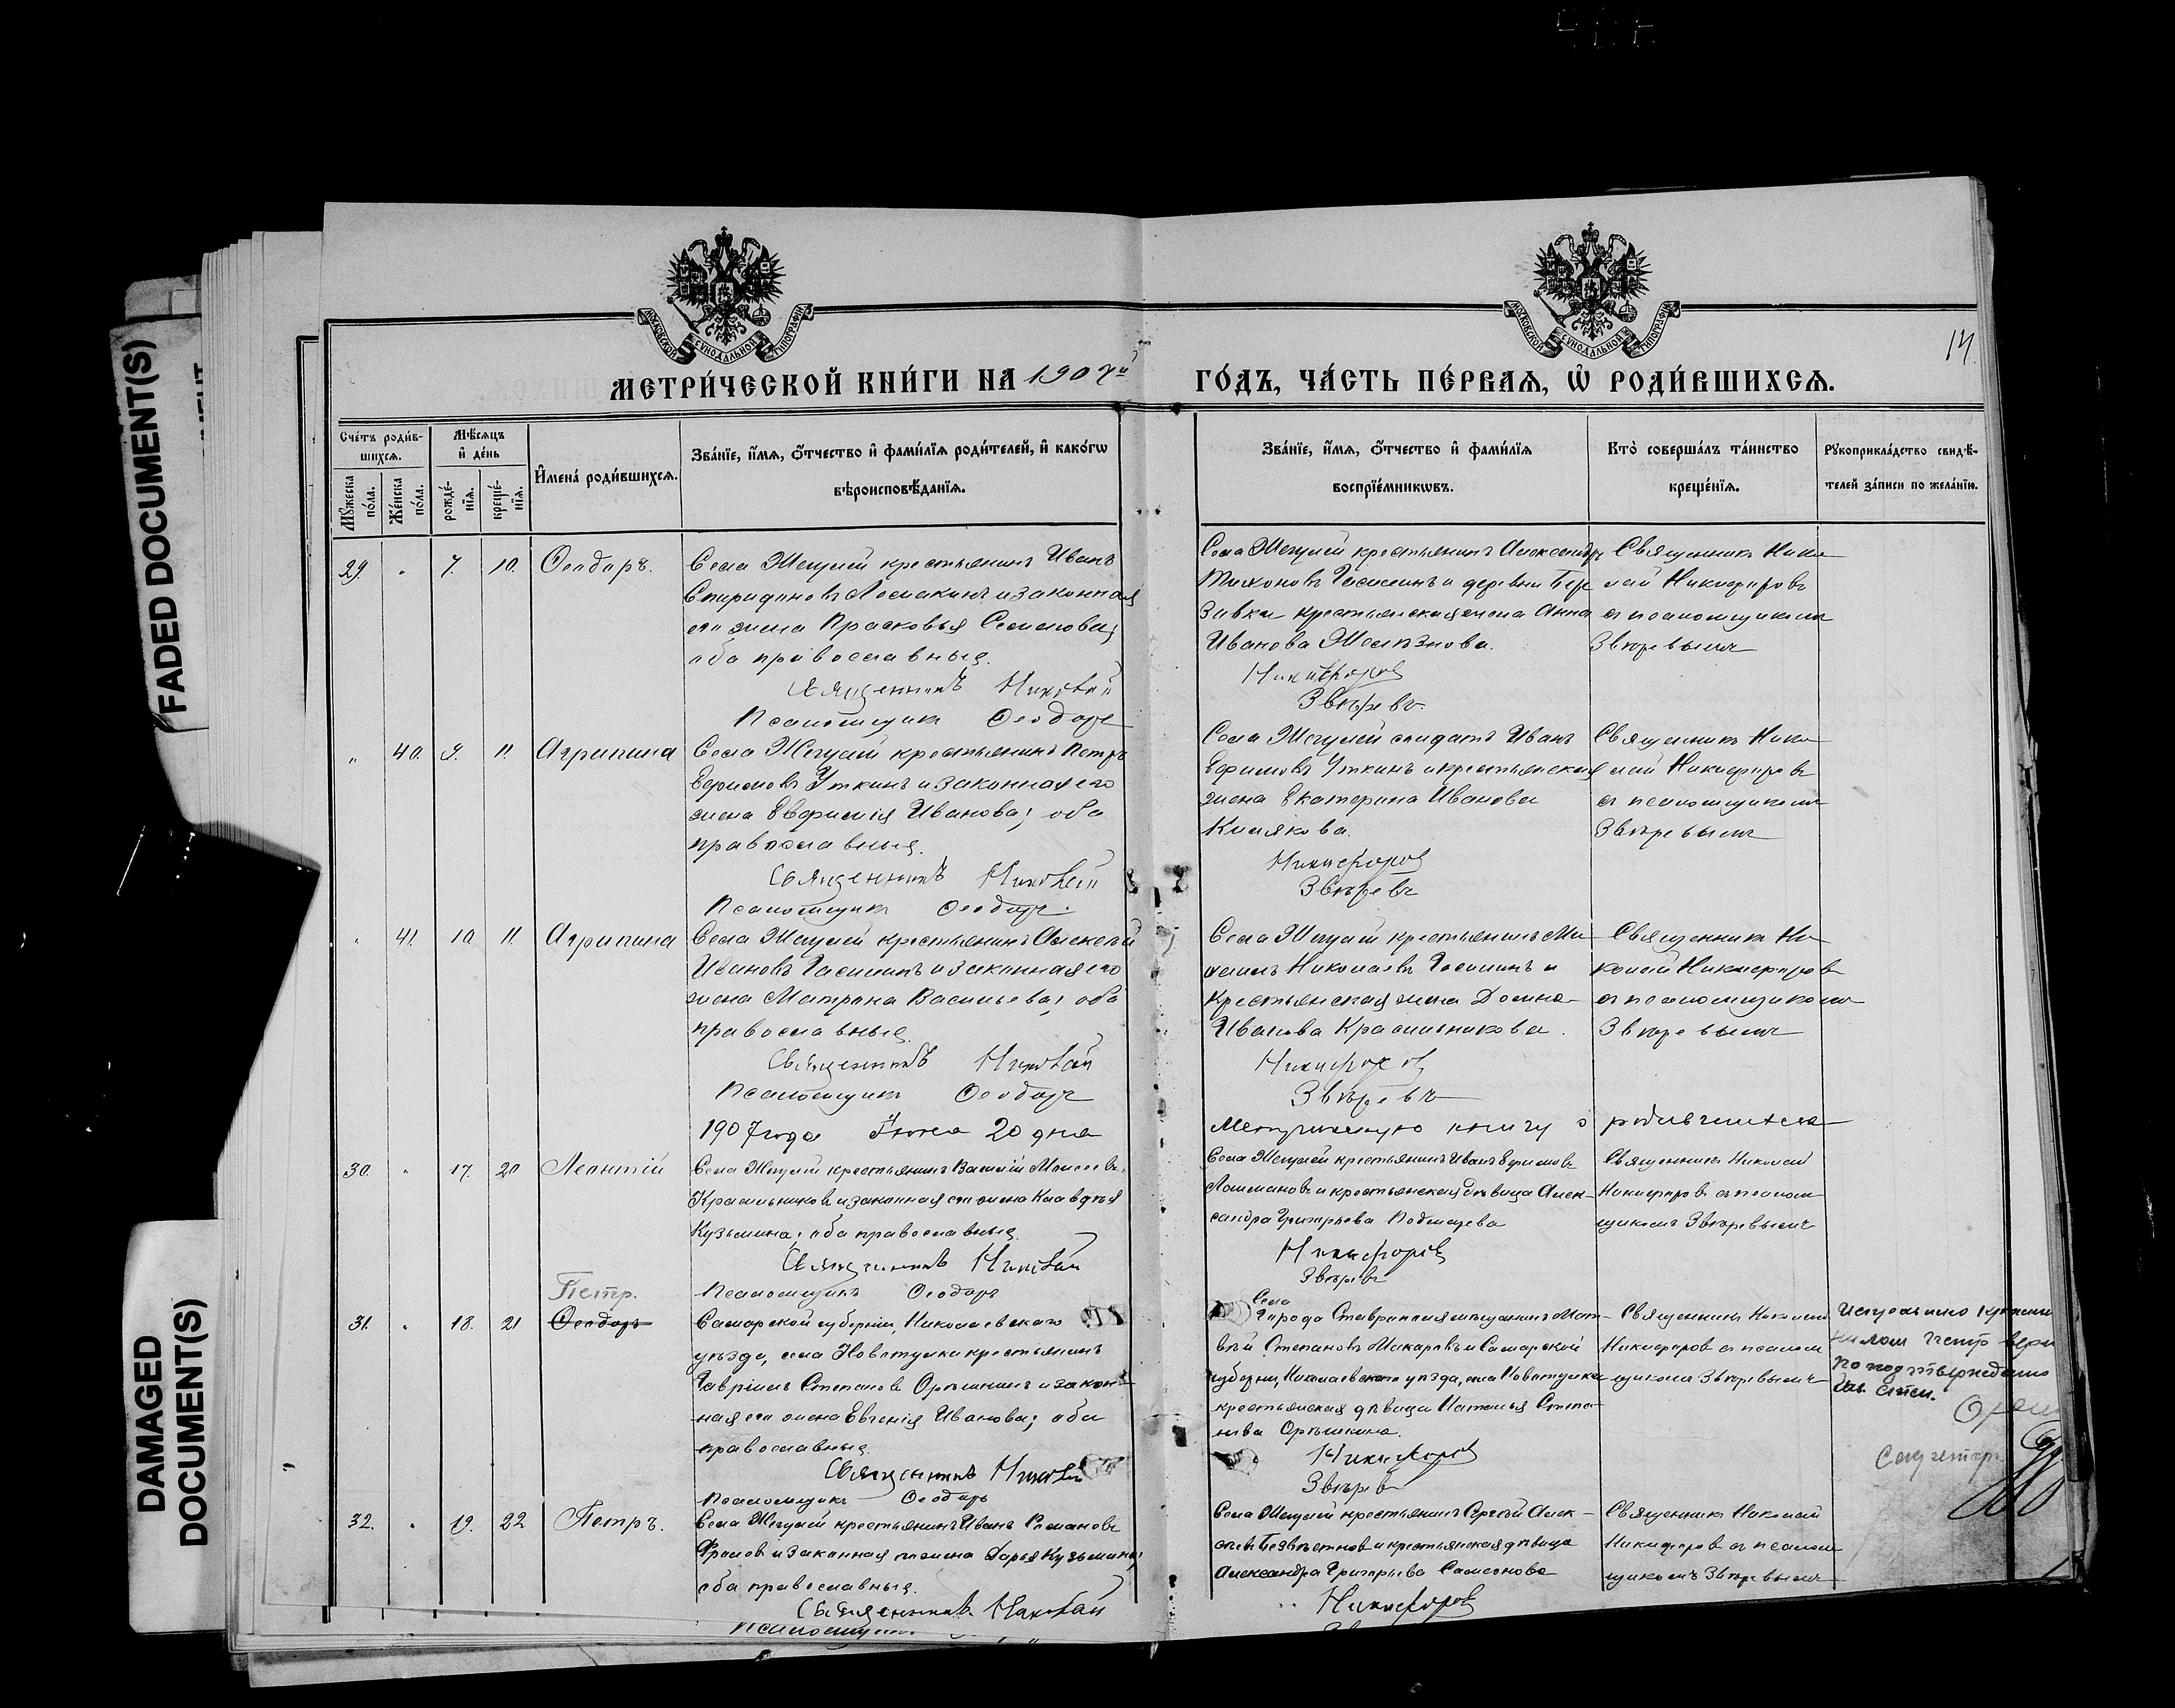 FADED DOCUMENT(S)
DAMAGED
DOCUMENT(S)
МОСКОВСКОЙ СѴНОДАЛЬНОЙ ТИПОГРАФІИ
МОСКОВСКОЙ СѴНОДАЛЬНОЙ ТИПОГРАФІИ
14.
МЕТРИ́ЧЕСКОЙ КНИ́ГИ НА 1907й ГО́ДЪ, ЧА́СТЬ ПЕ́РВАѦ, Ѡ҆ РОДИ́ВШИХСѦ.
Сче́тъ роди́в-
шихсѧ.
Мꙋ́жеска по́ла.
Же́нска по́ла.
Мѣ́сѧцъ
и҆ де́нь
рожде́-
нїѧ.
креще́-
нїѧ.
И҆мена̀ роди́вшихсѧ.
Зва́нїе, и҆́мѧ, ѻ҆́тчество и҆ фами́лїѧ роди́телей, и҆ како́гѡ
вѣроисповѣ́данїѧ.
Зва́нїе, и҆́мѧ, ѻ҆́тчество и҆ фами́лїѧ
воспрїе́мникѡвъ.
Кто̀ соверша́лъ та́инство
креще́нїѧ.
Рꙋкоприкла́дство свидѣ́-
телей за́писи по жела́нїю.
29. " 7. 10. Ѳеодоръ.
Села Жегулей крестьянинъ Иванъ
Спиридоновъ Ломакинъ и законная
его жена Прасковья Семенова;
оба православные.
Священникъ Николай
Псаломщикъ Ѳеодоръ
Села Жегулей крестьянинъ Александръ
Тихоновъ и деревни Бере
зовки крестьянская жена Анна
Иванова
Никифоровъ
Звѣревъ.
Священникъ Нико
лай Никифоровъ
съ псаломщикомъ
Звѣревымъ
" 40. 9. 11. Агрипина
Села Жегулей крестьянинъ Петръ
Ефимовъ Уткинъ и законная его
жена Евфимія Иванова; оба
православные.
Священникъ Николай
Псаломщикъ Ѳеодоръ.
Села Жегулей солдатъ Иванъ
Ефимовъ Уткинъ и крестьянская
жена Екатерина Иванова
Никифоровъ
Звѣревъ
Священникъ Нико
лай Никифоровъ
съ псаломщикомъ
Звѣревымъ
" 41. 10. 11. Агрипина
Села Жегулей крестьянинъ Алексѣй
Ивановъ и законная его
жена Матрона Васильева; оба
православные.
Священникъ Николай
Псаломщикъ Ѳеодоръ
Села Жегулей крестьянинъ Ми
хаилъ Николаевъ и
крестьянская жена Домна
Иванова Красильникова.
Никифоровъ
Звѣревъ
Священникъ Ни
колай Никифоровъ
съ псаломщикомъ
Звѣревымъ
1907 года Іюня 20 дня
Метрическую книгу о родившихся
30. " 17. 20 Леонтій
Села Жегулей крестьянинъ Василій Моисеевъ
Красильниковъ и законная его жена Клавдія
Кузьмина; оба православные.
Священникъ Николай
Псаломщикъ Ѳеодоръ
Села Жегулей крестьянинъ Иванъ Ефимовъ
и крестьянская дѣвица Алек-
сандра Григорьева
Никифоровъ
Звѣревъ
Священникъ Николай
Никифоровъ съ псалом
щикомъ Звѣревымъ
Петр.
31. " 18. 21 Ѳеодоръ
Самарской губерніи, Николаевскаго
уѣзда, села крестьянинъ
Гавріилъ Степановъ Орѣшкинъ и закон
ная его жена Евгенія Иванова; оба
православные.
Священникъ Николай
Псаломщикъ Ѳеодоръ
Города Ставрополя мѣщанинъ Мат-
вѣй Степановъ Макаровъ и Самарской
губерніи, Николаевскаго уѣзда, села
крестьянская дѣвица Наталья Степа-
нова Орѣшкина.
Никифоровъ
Звѣревъ
Священникъ Николай
Никифоровъ съ псалом
щикомъ Звѣревымъ
32. " 19. 22 Петръ.
Села Жегулей крестьянинъ Иванъ Романовъ
Фроловъ и законная его жена Дарья Кузьмина;
оба православные.
Священникъ Николай
Псаломщикъ
Села Жегулей крестьянинъ Сергѣй Алек-
и крестьянская дѣвица
Александра Григорьева Самсонова
Никифоровъ
Священникъ Николай
Никифоровъ съ псалом
щикомъ Звѣревымъ